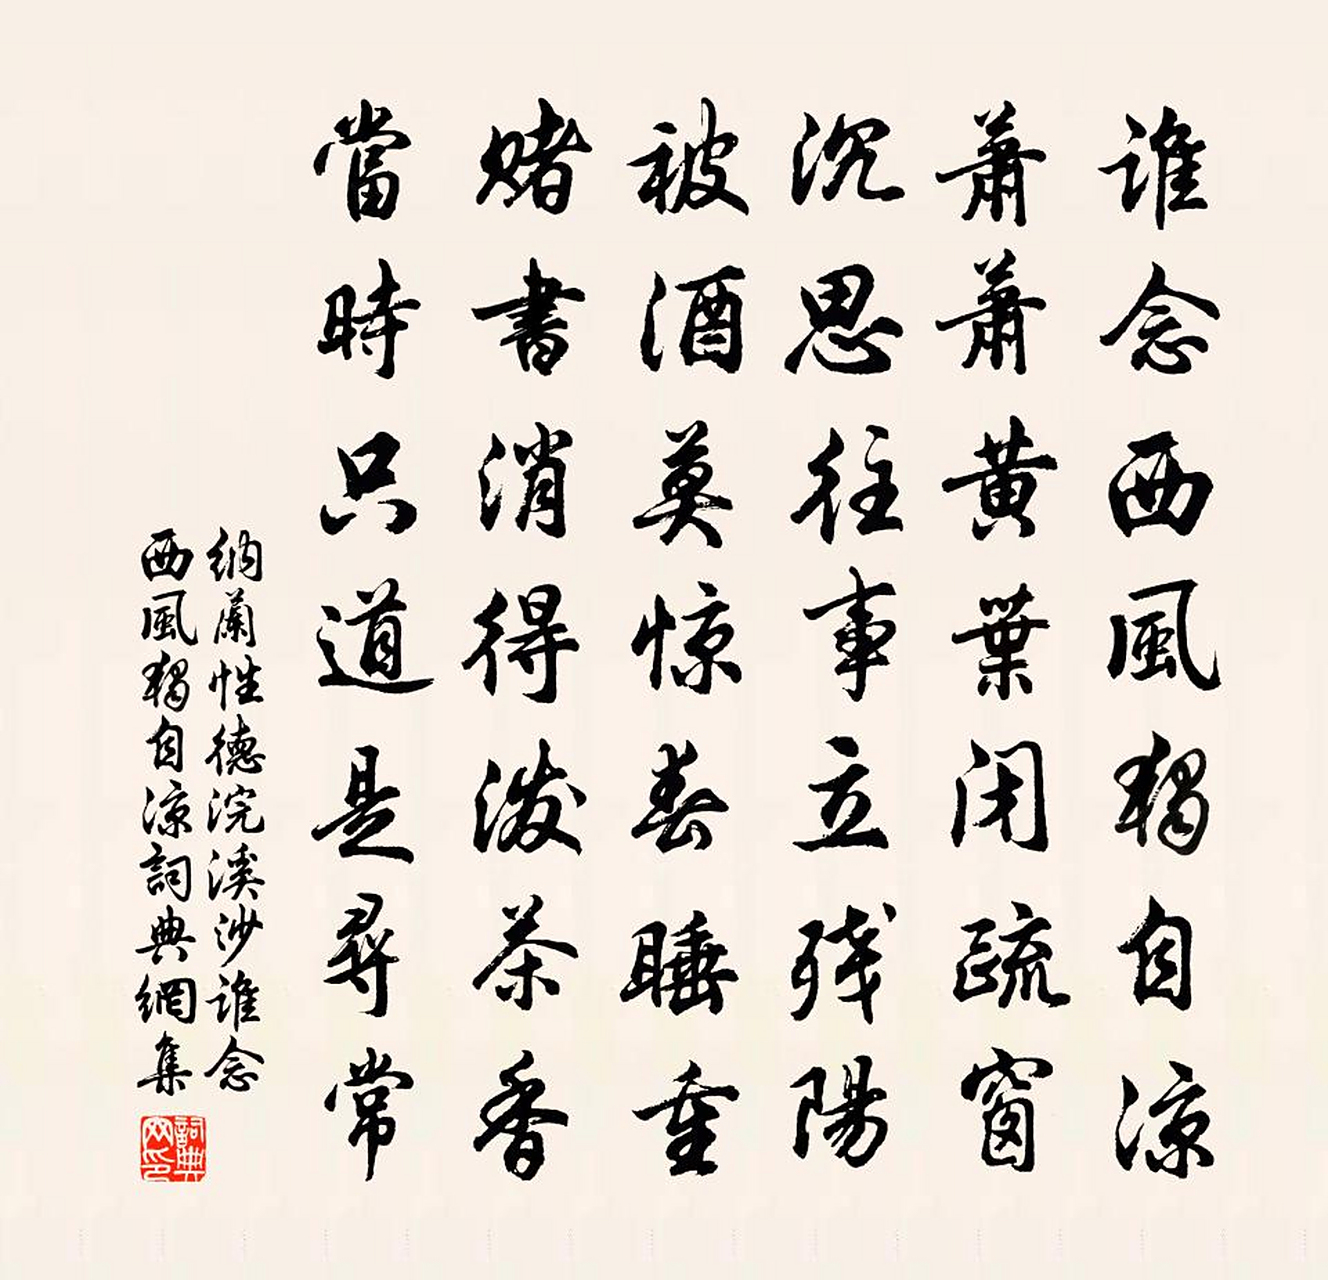 谁念西風獨自涼
蕭蕭黄葉闭疏窗
沉思往事立残陽
被酒莫惊春睡重
赌書消得泼茶香
當時只道是尋常
纳蘭性德浣溪沙谁念
西風獨自凉詞典網集
詞典
网印